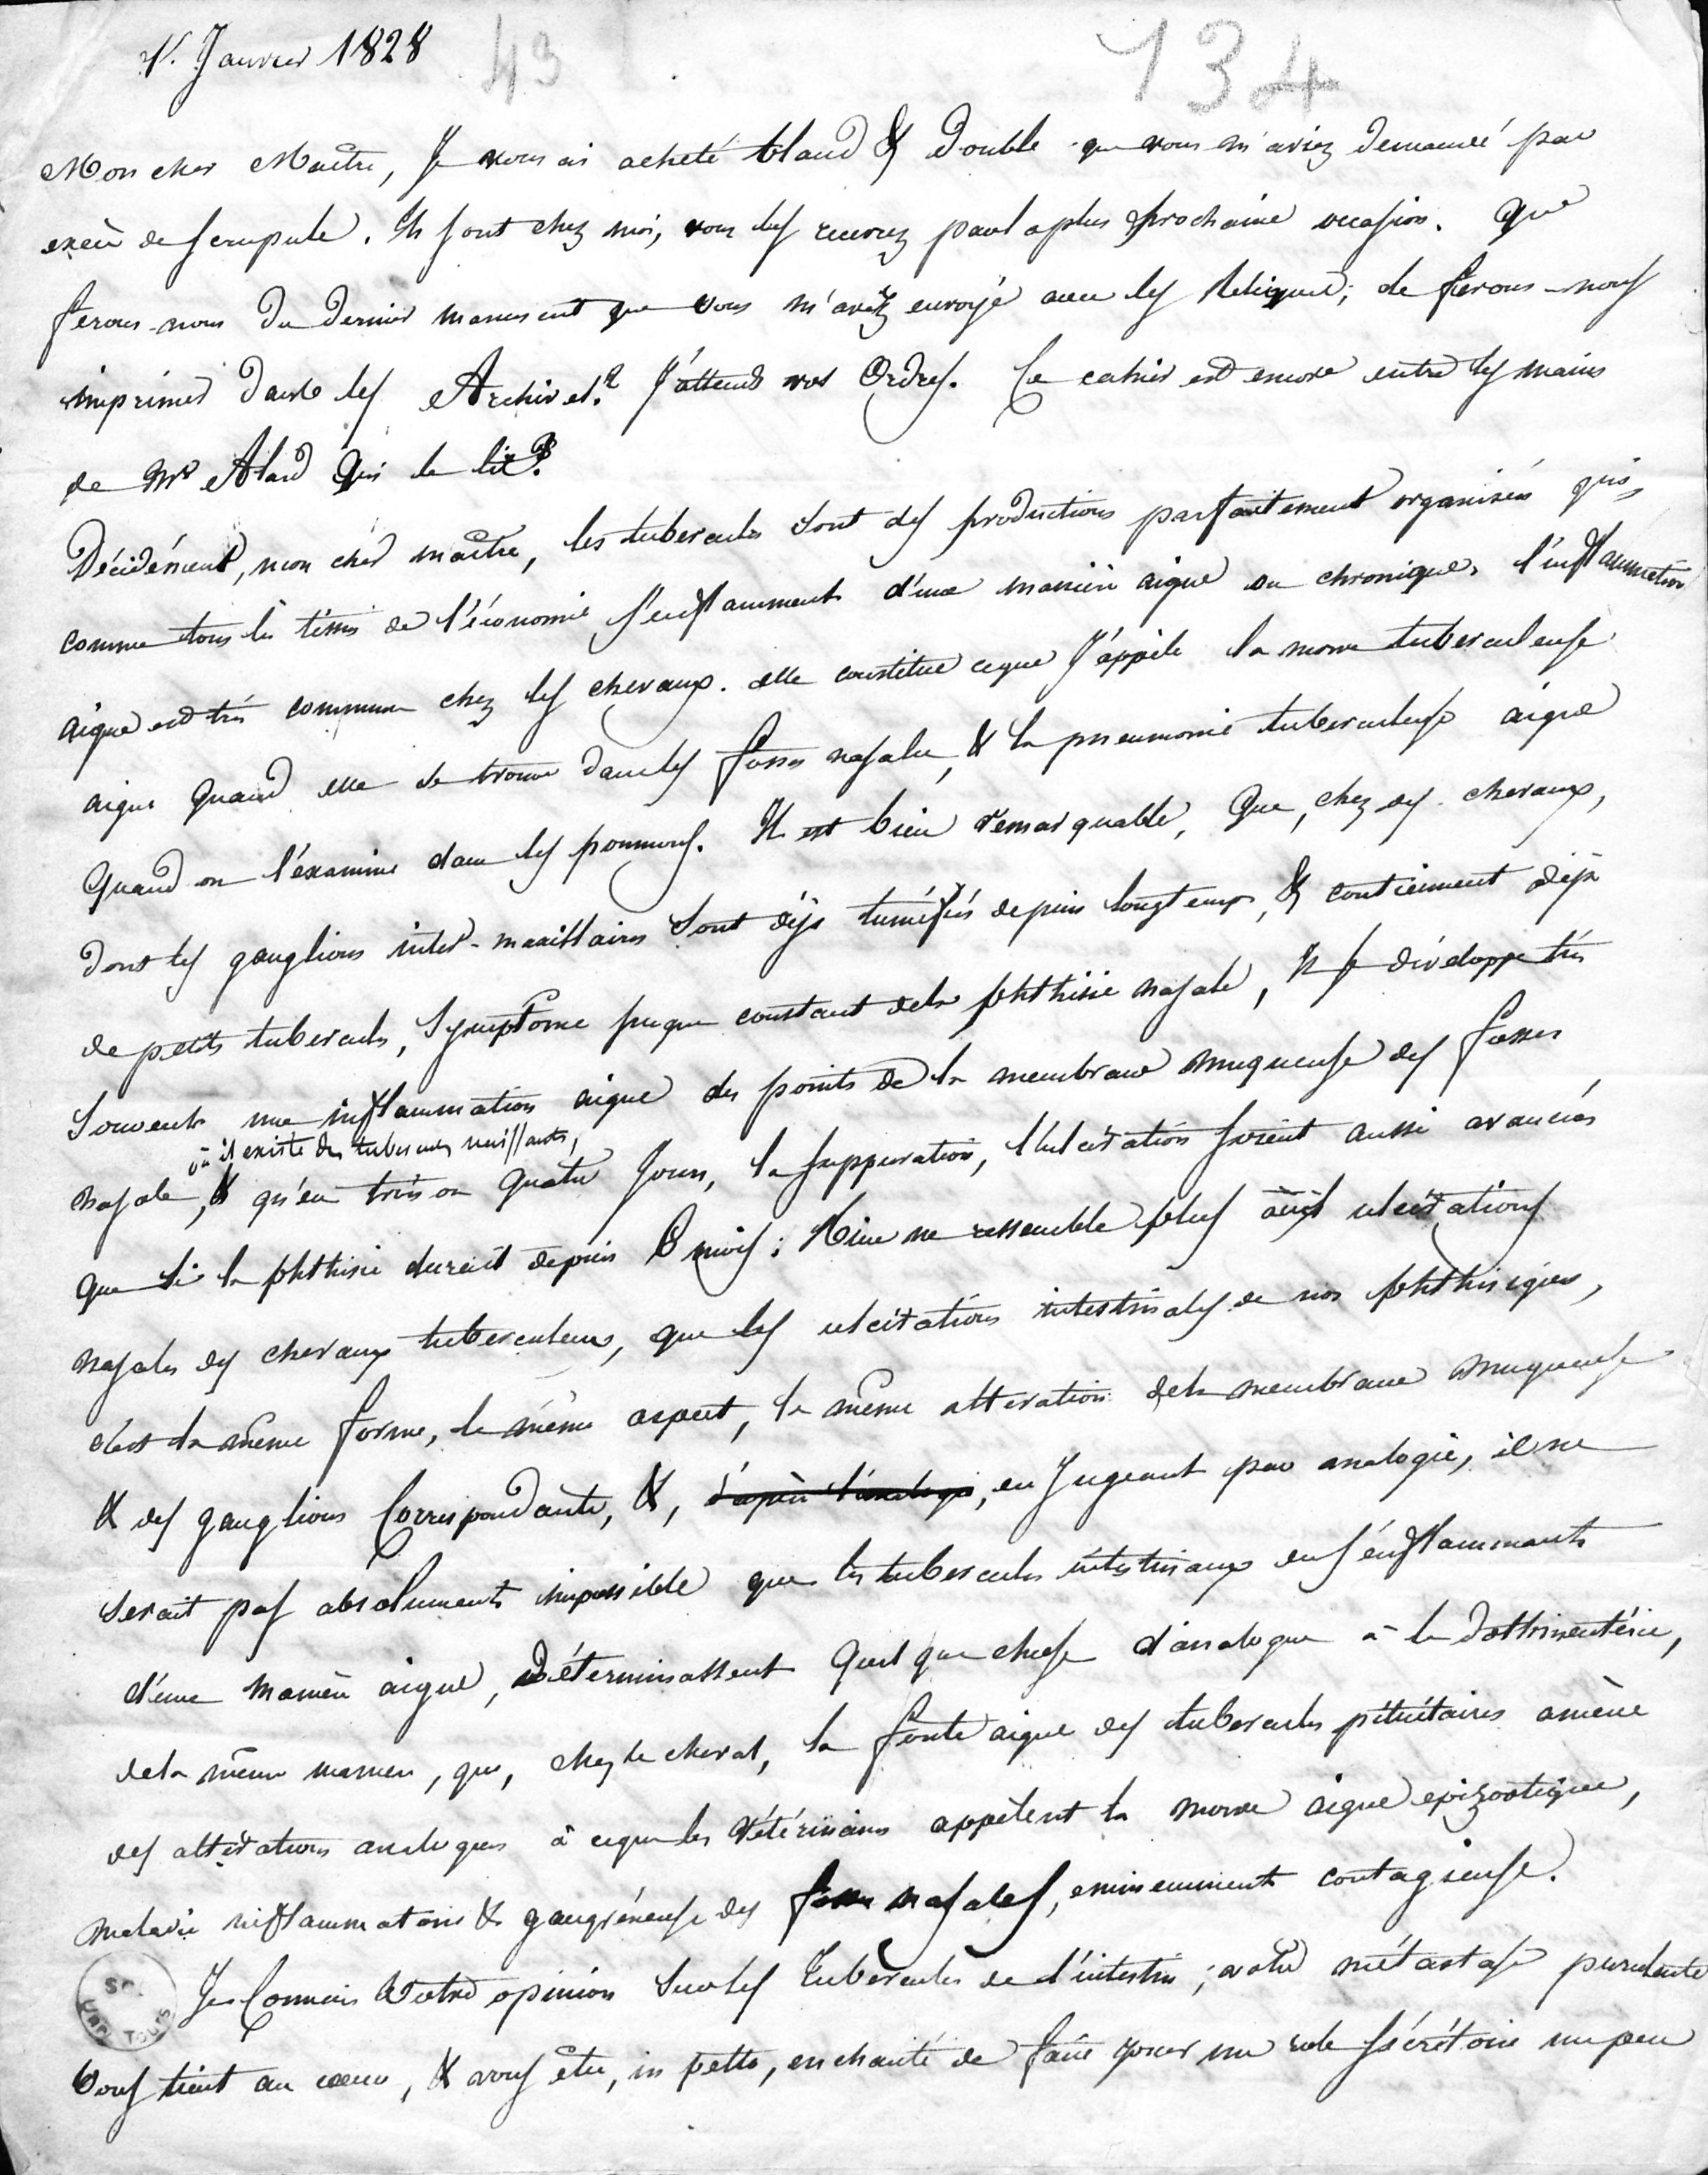 1r. Janvier 1828 43 134
Mon cher Maître, Je vous ai acheté bland & Double que vous m'aviez demandé par
excès de scrupule. Ils sont chez moi, vous les recevrez par la plus prochaine occasion. Que
ferons-nous du dernier manuscrit que vous m'avez envoyé avec les Reliquat; le ferons-nous
imprimer dans les Archives? J'attends vos Ordres. Ce cahier est encore entre les mains
de Mr Alard qui le lit.
Décidément, mon cher maître, les tubercules sont des productions parfaitement organisées qui,
comme tous les tissus de l'économie s'enflamment d'une manière aigue ou chronique, l'inflammation
aigue est très commune chez les chevaux. elle constitue ce que J'appèle la morve tuberculeuse
aigue quand elle se trouve dans les fosses nasales, & la pneumonie tuberculeuse aigue
Quand on l'examine dans les poumons. Il est bien remarquable, Que, chez des chevaux,
dont les ganglions inter-maxillaires sont déjà tuméfiés depuis longtemps, & contiennent déjà
de petits tubercules, Symptôme presque constant de la phthisie nasale, Il se développe très
Souvent une inflammation aigue des points de la membrane muqueuse des fosses
où il existe des tubercules naissants,
nasales, & qu'en trois ou quatre jours, la suppuration, l'ulcération soient aussi avancées
que si la phthisie durait depuis 6 mois: Rien ne ressemble plus aux ulcérations
nasales des chevaux tuberculeux, que les ulcérations intestinales de nos phthisiques,
c'est la même forme, le même aspect, la même altération de la membrane muqueuse
& des ganglions Correspondants, &, d'après l'analogie, en Jugeant par analogie, il ne
serait pas absolument impossible que les tubercules intestinaux en s'enflammant
d'une manière aigue, Déterminassent quelque chose d'analogue à la dothinentérie,
de la même manière, que, chez le cheval, la fonte aigue des tubercules pituitaires amène
des altérations analogues à ce que les vétérinaires appèlent la morve aigue epizootique,
maladie inflammatoire & gangréneuse des fosses nasales, eminemment contagieuse.
Je Connais Votre opinion sur les Tubercules de l'intestin; votre métastase purulente
vous tient au coeur, & vous êtes, in petto, enchanté de faire jouer un role sécrétoire un peu